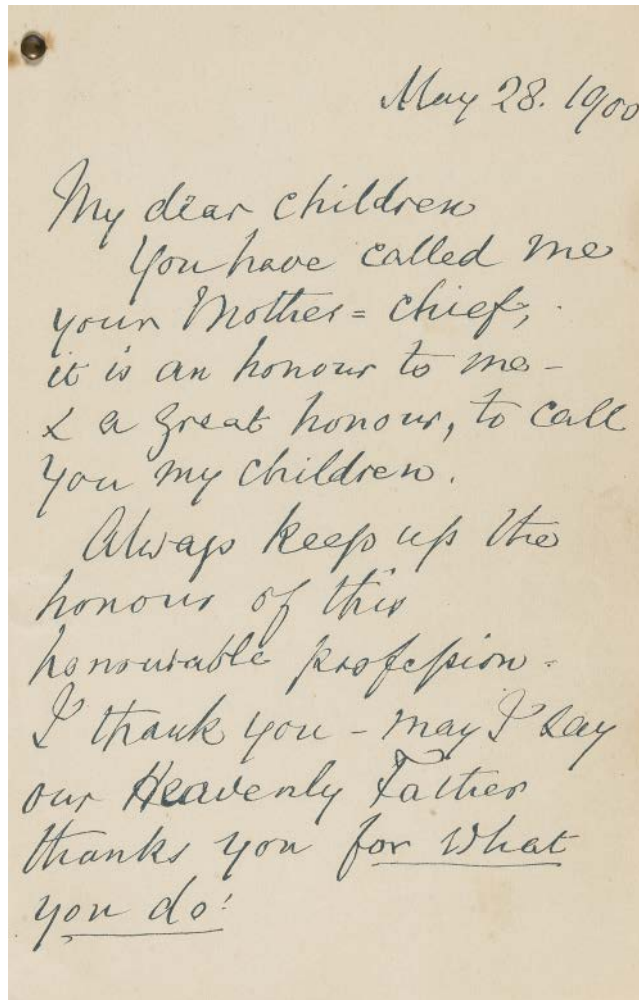 May 28. 1900
My dear children
You have called me
your Mother = chief,
it is an honour to me -
& a great honour, to call
you my children.
Always keep up the
honour of this
honourable profession -
I thank you - may I say
our Heavenly Father
thanks you for what
you do!